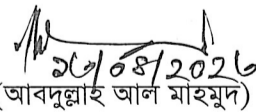 ১৬/০৪/২০২৬
(আবদুল্লাহ আল মাহমুদ)